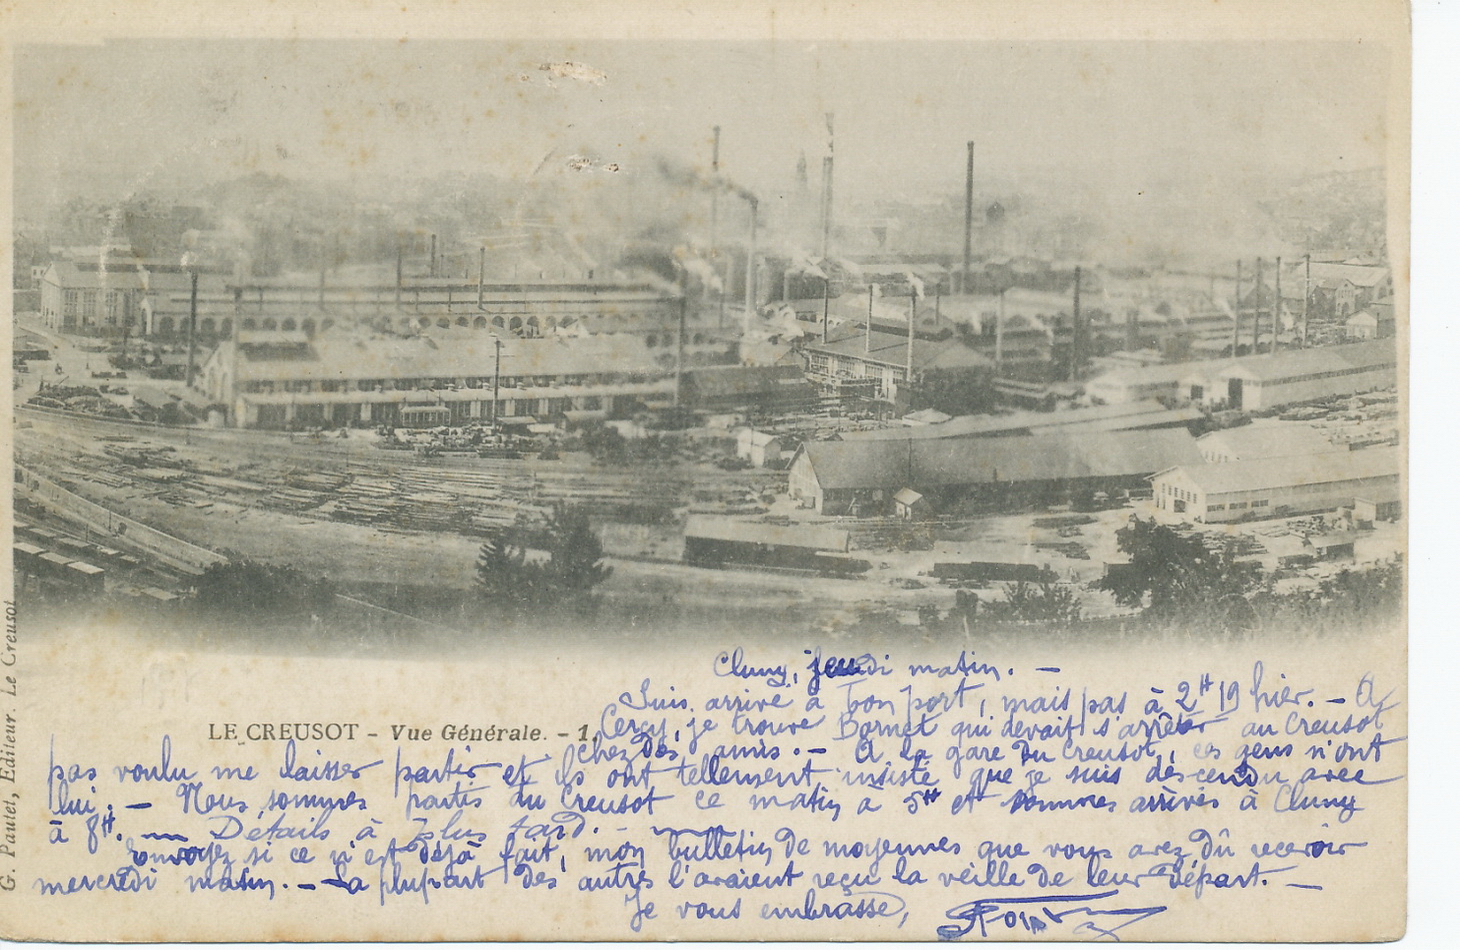 Cluny, jeudi matin. —
Suis arrivé à bon port, mais pas à 2H 19 hier. — A
Cercy, je trouve Bornet qui devait s'arrêter au Creusot
LE CREUSOT - Vue Générale. - 1.
chez des amis. — A la gare du Creusot, ces gens n'ont
pas voulu me laisser partir et ils ont tellement insisté que je suis descendu avec
lui. — Nous sommes partis du Creusot ce matin à 5H et sommes arrivés à Cluny
à 8H. — Détails à plus tard. —
Envoyez si ce n'est déjà fait, mon bulletin de moyennes que vous avez dû recevoir
mercredi matin. — La plupart des autres l'avaient reçu la veille de leur départ. —
Je vous embrasse,
G. Pautet, Editeur. Le Creusot